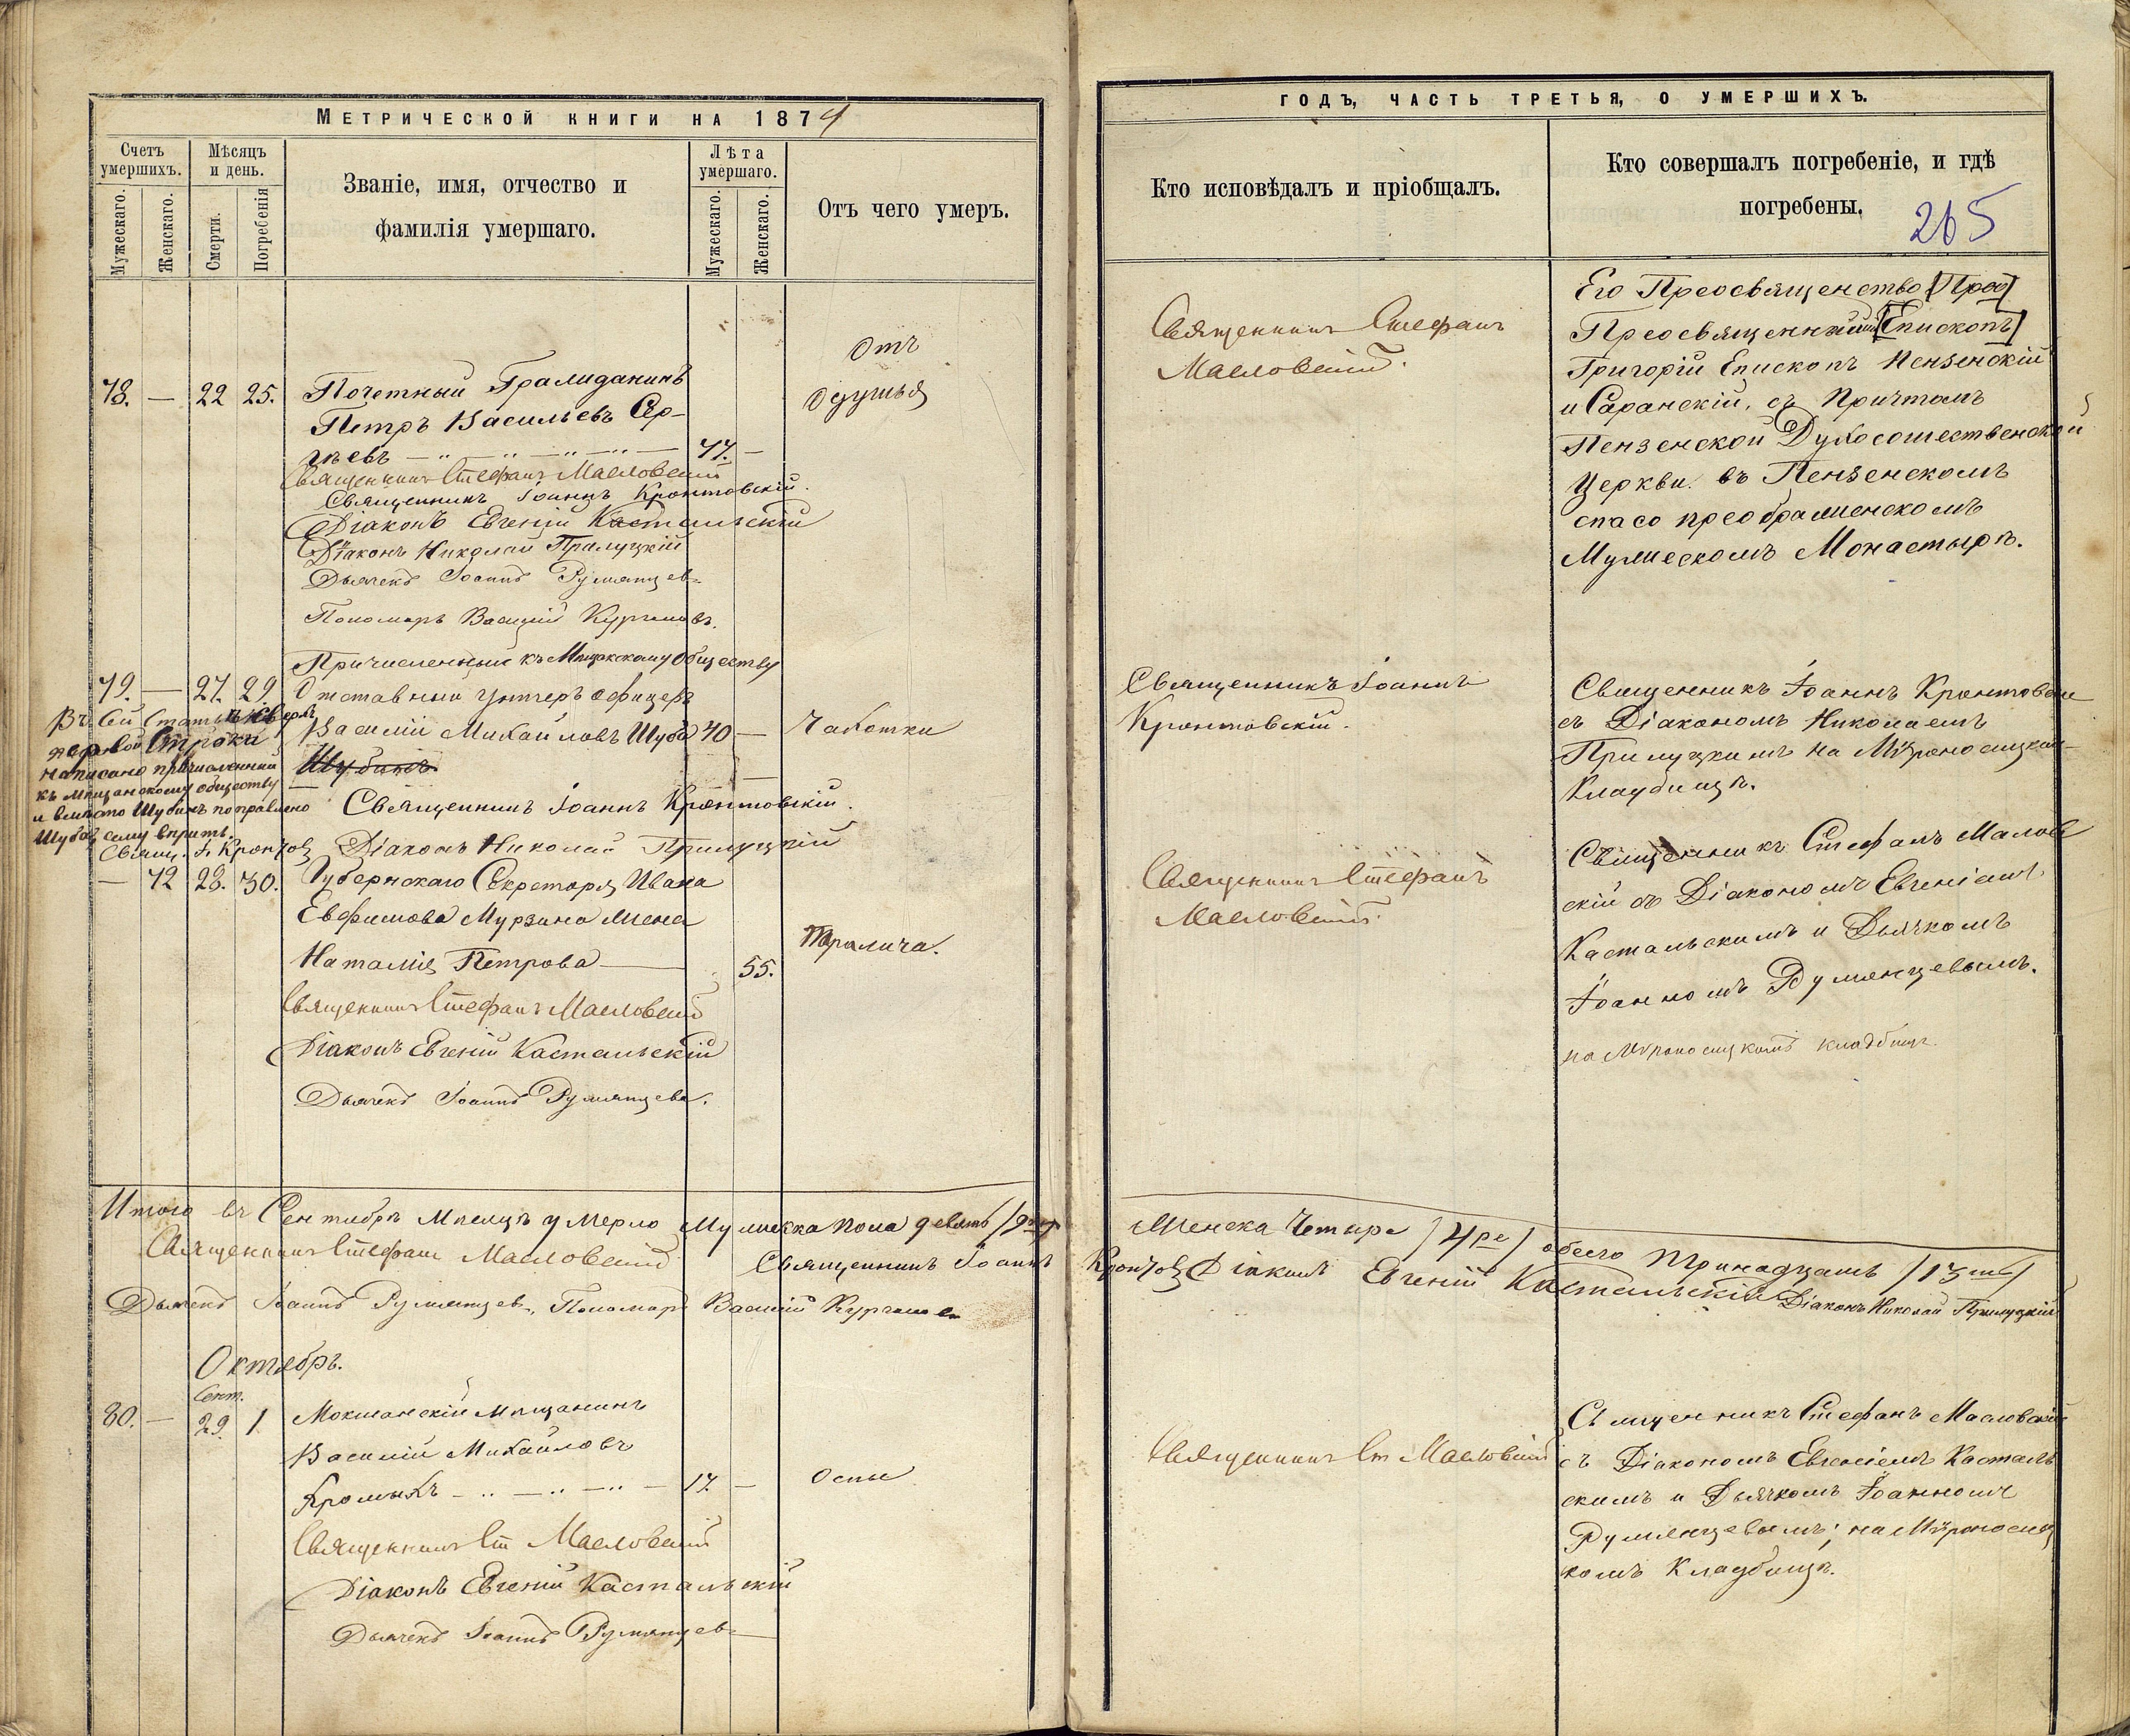 Метрической книги на 1874
Счетъ умершихъ.
Мужескаго.
Женскаго.
Мѣсяцъ и день.
Смерти.
Погребенія
Званіе, имя, отчество и
фамилія умершаго.
Лѣта умершаго.
Мужескаго.
Женскаго.
Отъ чего умеръ.
78. — 22 25. Почетный Гражданинъ
Петръ Васильевъ Сер-
гѣевъ — 47. —
Отъ
удушья
Священникъ Стефанъ Масловскій
Священникъ Іоаннъ Кронтовскій.
Діаконъ Евгеній Кастальскій
Діаконъ Николай Прилуцкій
Дьячекъ Іоаннъ Румянцевъ
Пономарь Василій Кургановъ.
Причисленный къ Мѣщанскому обществу
79. — 27. 29. Отставный унтеръ офицеръ
Василій Михайловъ Шубо 40 — Чахотки
Шубинъ
Въ сей статьѣ сверхъ
первой строки
написано причисленный
къ мѣщанскому обществу
и вмѣсто Шубинъ поправлено
Шубо, сему вѣрить.
Свящ. І. Кронтов
Священникъ Іоаннъ Кронтовскій.
Діаконъ Николай Прилуцкій
— 42 28. 30. Губернскаго Секретаря Ивана
Евфимова Мурзина жена
Наталія Петрова — 55. Паралича.
Священникъ Стефанъ Масловскій
Діаконъ Евгеній Кастальскій
Дьячекъ Іоаннъ Румянцевъ.
Итого въ Сентябрѣ мѣсяцѣ умерло мужеска пола девять
Священникъ Стефанъ Масловскій Священникъ Іоаннъ
Дьячекъ Іоаннъ Румянцевъ, Пономарь Василій Кургановъ
Октябрь.
Сент.
80. — 29. 1. Мокшанскій мѣщанинъ
Василій Михайловъ
Хромыхъ — 17. — Оспы
Священникъ Ст Масловскій
Діаконъ Евгеній Кастальскій
Дьячекъ Іоаннъ Румянцевъ
годъ, часть третья, о умершихъ.
Кто исповѣдалъ и пріобщалъ.
Кто совершалъ погребеніе, и гдѣ
погребены.
265
Священникъ Стефанъ
Масловскій.
Его Преосвященство [Прео]
Преосвященнѣйшій [Епископъ]
Григорій Епископъ Пензенскій
и Саранскій, съ Причтомъ
Пензенской Духосошественской
Церкви. въ Пензенскомъ
спасопреображенскомъ
Мужескомъ Монастырѣ.
Священникъ Іоаннъ
Кронтовскій.
Священникъ Іоаннъ Кронтовскій
съ Діакономъ Николаемъ
Прилуцкимъ на Мѵроносицкомъ
Кладбищѣ.
Священникъ Стефанъ
Масловскій.
Священникъ Стефанъ Маслов
скій съ Діакономъ Евгеніемъ
Кастальскимъ и Дьячкомъ
Іоанномъ Румянцевымъ.
на Мѵроносицкомъ кладбищѣ.
Женска Четыре /4ре/ обоего Тринадцать /13ть/
Кронтов Діаконъ Евгеній Кастальскій Діаконъ Николай Прилуцкій
Священникъ Ст Масловскій
Священникъ Стефанъ Масловскій
съ Діакономъ Евгеніемъ Касталь
скимъ и Дьячкомъ Іоанномъ
Румянцевымъ, на Мѵроносиц
комъ Кладбищѣ.